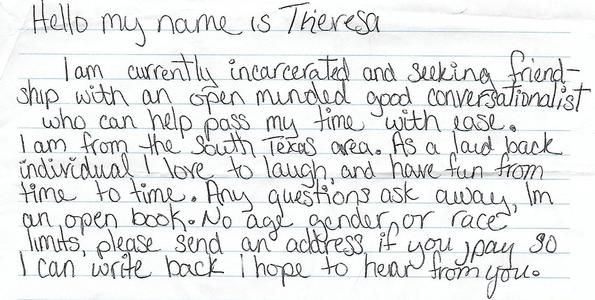 Hello my name is Theresa
I am currently incarcerated and seeking friend-
ship with an open minded good conversationalist
who can help pass my time with ease.
I am from the South Texas area. As a laid back
individual I love to laugh, and have fun from
time to time. Any questions ask away, Im
an open book. No age gender, or race
limits, please send an address, if you jpay so
I can write back I hope to hear from you.